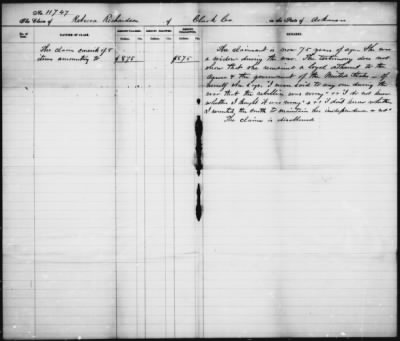 No 11747
The Claim of Rebecca Richardson of Clark Co. in the State of Arkansas
No. of Item.
NATURE OF CLAIM.
AMOUNT CLAIMED.
AMOUNT ALLOWED.
AMOUNT DISALLOWED.
REMARKS.
Dollars. Cts. Dollars. Cts. Dollars. Cts.
The claim consists of 5
items amounting to $875 $875
The claimant is now 75 years of age. She was
a widow during the war. The testimony does not
show that she remained a loyal adherent to the
cause & the government of the United States -- of
herself she says "I never said to any one during the
war that the rebellion was wrong" " I do not know
whether I thought it was wrong" & "I don't know whether
I wanted the South to maintain her independence or not"
The claim is disallowed